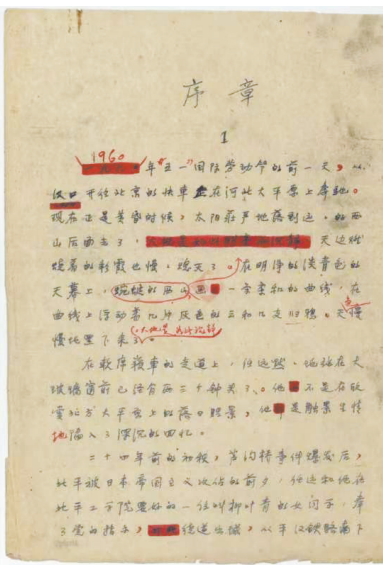 序章
1
1960年“五一”国际劳动节的前一天，从
汉口开往北京的快车在河北大平原上奔驰。
现在正是黄昏时候，太阳庄严地落到远的西
山后面去了，天边燃
烧着的彩霞也慢熄灭了。在明净的淡青色的
天幕上，蜿蜒的西山一条柔和的曲线，在
曲线上浮动着几片灰色的云和几
慢地黑下来了。
在软席寝车的走道上，任远默地站在大
玻璃窗前已经有二十钟头了。他不是在欣
赏北方大平原上的落日晚景，他是触景生情
地陷入了深沉的回忆。
二十四年前的初秋，芦沟桥事件爆发后，
北平被日本帝国主义攻占的前夕，任远和他在
北平上学院要好的一位叫柳叶青的女同学，奉
了党的指示，绕道出城，从平汉铁路南下